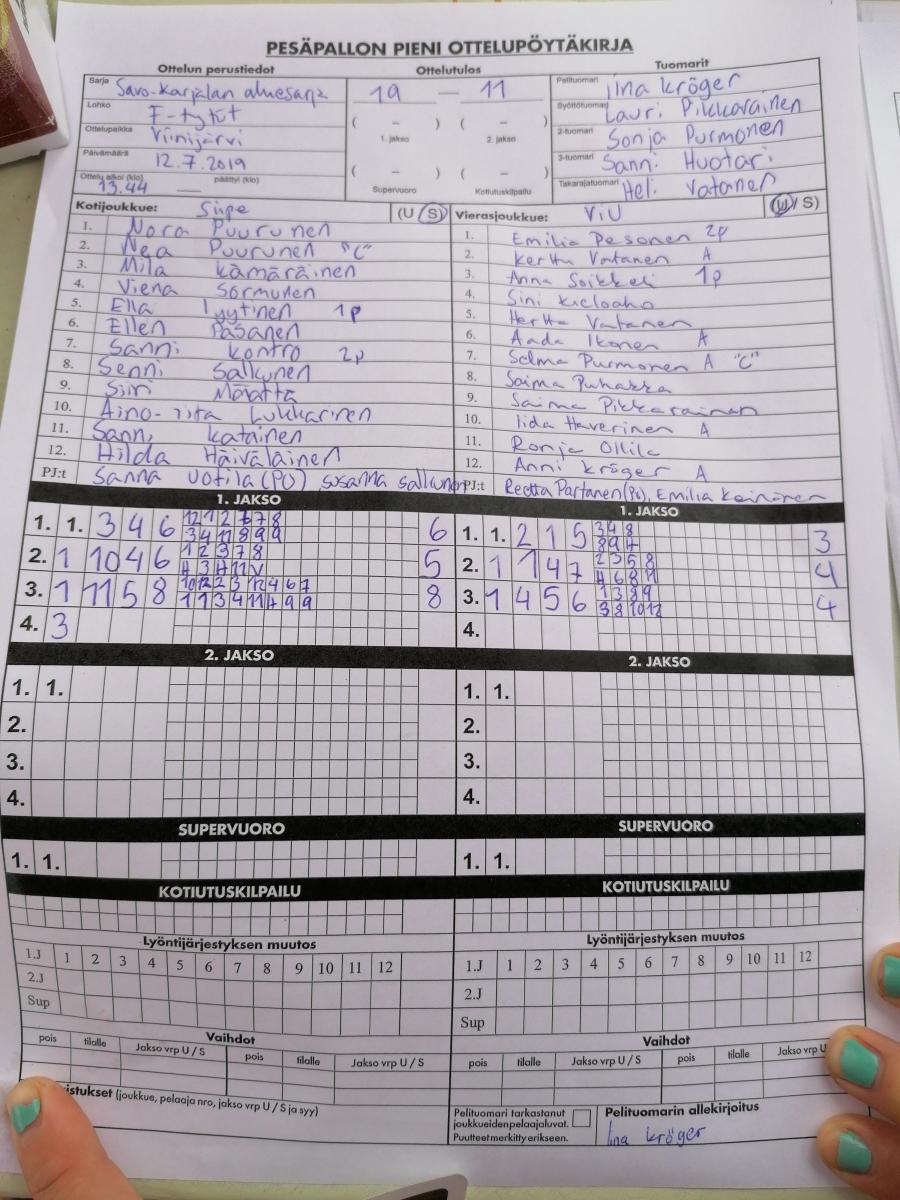 PESÄPALLON PIENI OTTELUPÖYTÄKIRJA
Ottelun perustiedot
Sarja Savo-Karjalan aluesarja
Lohko F-tytöt
Ottelupaikka Viinijärvi
Päivämäärä 12.7.2019
Ottelu alkoi (klo) 13.44 päättyi (klo)
Ottelutulos
19 — 11
( – ) ( – )
1. jakso 2. jakso
( – ) ( – )
Supervuoro Kotiutuskilpailu
Tuomarit
Pelituomari Iina Kröger
Syöttötuomari Lauri Pikkarainen
2-tuomari Sonja Purmonen
3-tuomari Sanni Huotari
Takarajatuomari Heli Vatanen
Kotijoukkue: Siipe (U / S)
1. Nora Puurunen
2. Nea Puurunen "C"
3. Mila Kämäräinen
4. Viena Sormunen
5. Ella Lyytinen 1p
6. Ellen Pasanen
7. Sanni Kontro 2p
8. Senni Salkunen
9. Siiri Määttä
10. Aino-Iita Lukkarinen
11. Sanni Katainen
12. Hilda Häiväläinen
PJ:t Sanna Votila (PJ) Susanna Salkunen
Vierasjoukkue: ViU (U / S)
1. Emilia Pesonen 2p
2. Kerttu Vatanen A
3. Anna Soikkeli 1p
4. Sini Kieloaho
5. Hertta Vatanen
6. Aada Ikonen A
7. Selma Purmonen A "C"
8. Saima Puhakka
9. Saima Pikkarainen
10. Iida Haverinen A
11. Ronja Ollila
12. Anni Kröger A
PJ:t Reetta Partanen (PJ), Emilia Keinänen
1. JAKSO
1. 1. 3 4 6 12 1 2 6 7 8 6
3 4 11 8 9 9
2. 1 10 4 6 1 2 3 7 8 5
4 3 4 11 V
3. 1 11 5 8 10 12 2 3 12 4 6 7 8
1 1 3 4 11 4 9 9
4. 3
1. JAKSO
1. 1. 2 1 5 3 4 8 3
8 9 4
2. 1 1 4 7 2 3 5 8 4
4 6 8 11
3. 1 4 5 6 1 3 8 9 4
3 8 10 12
4.
2. JAKSO
1. 1.
2.
3.
4.
2. JAKSO
1. 1.
2.
3.
4.
SUPERVUORO
1. 1.
SUPERVUORO
1. 1.
KOTIUTUSKILPAILU
KOTIUTUSKILPAILU
Lyöntijärjestyksen muutos
1.J 1 2 3 4 5 6 7 8 9 10 11 12
2.J
Sup
Lyöntijärjestyksen muutos
1.J 1 2 3 4 5 6 7 8 9 10 11 12
2.J
Sup
Vaihdot
pois tilalle Jakso vrp U / S pois tilalle Jakso vrp U / S
Vaihdot
pois tilalle Jakso vrp U / S pois tilalle Jakso vrp U
istukset (joukkue, pelaaja nro, jakso vrp U / S ja syy)
Pelituomari tarkastanut
joukkueidenpelaajaluvat.
Puutteet merkitty erikseen.
Pelituomarin allekirjoitus
Iina Kröger